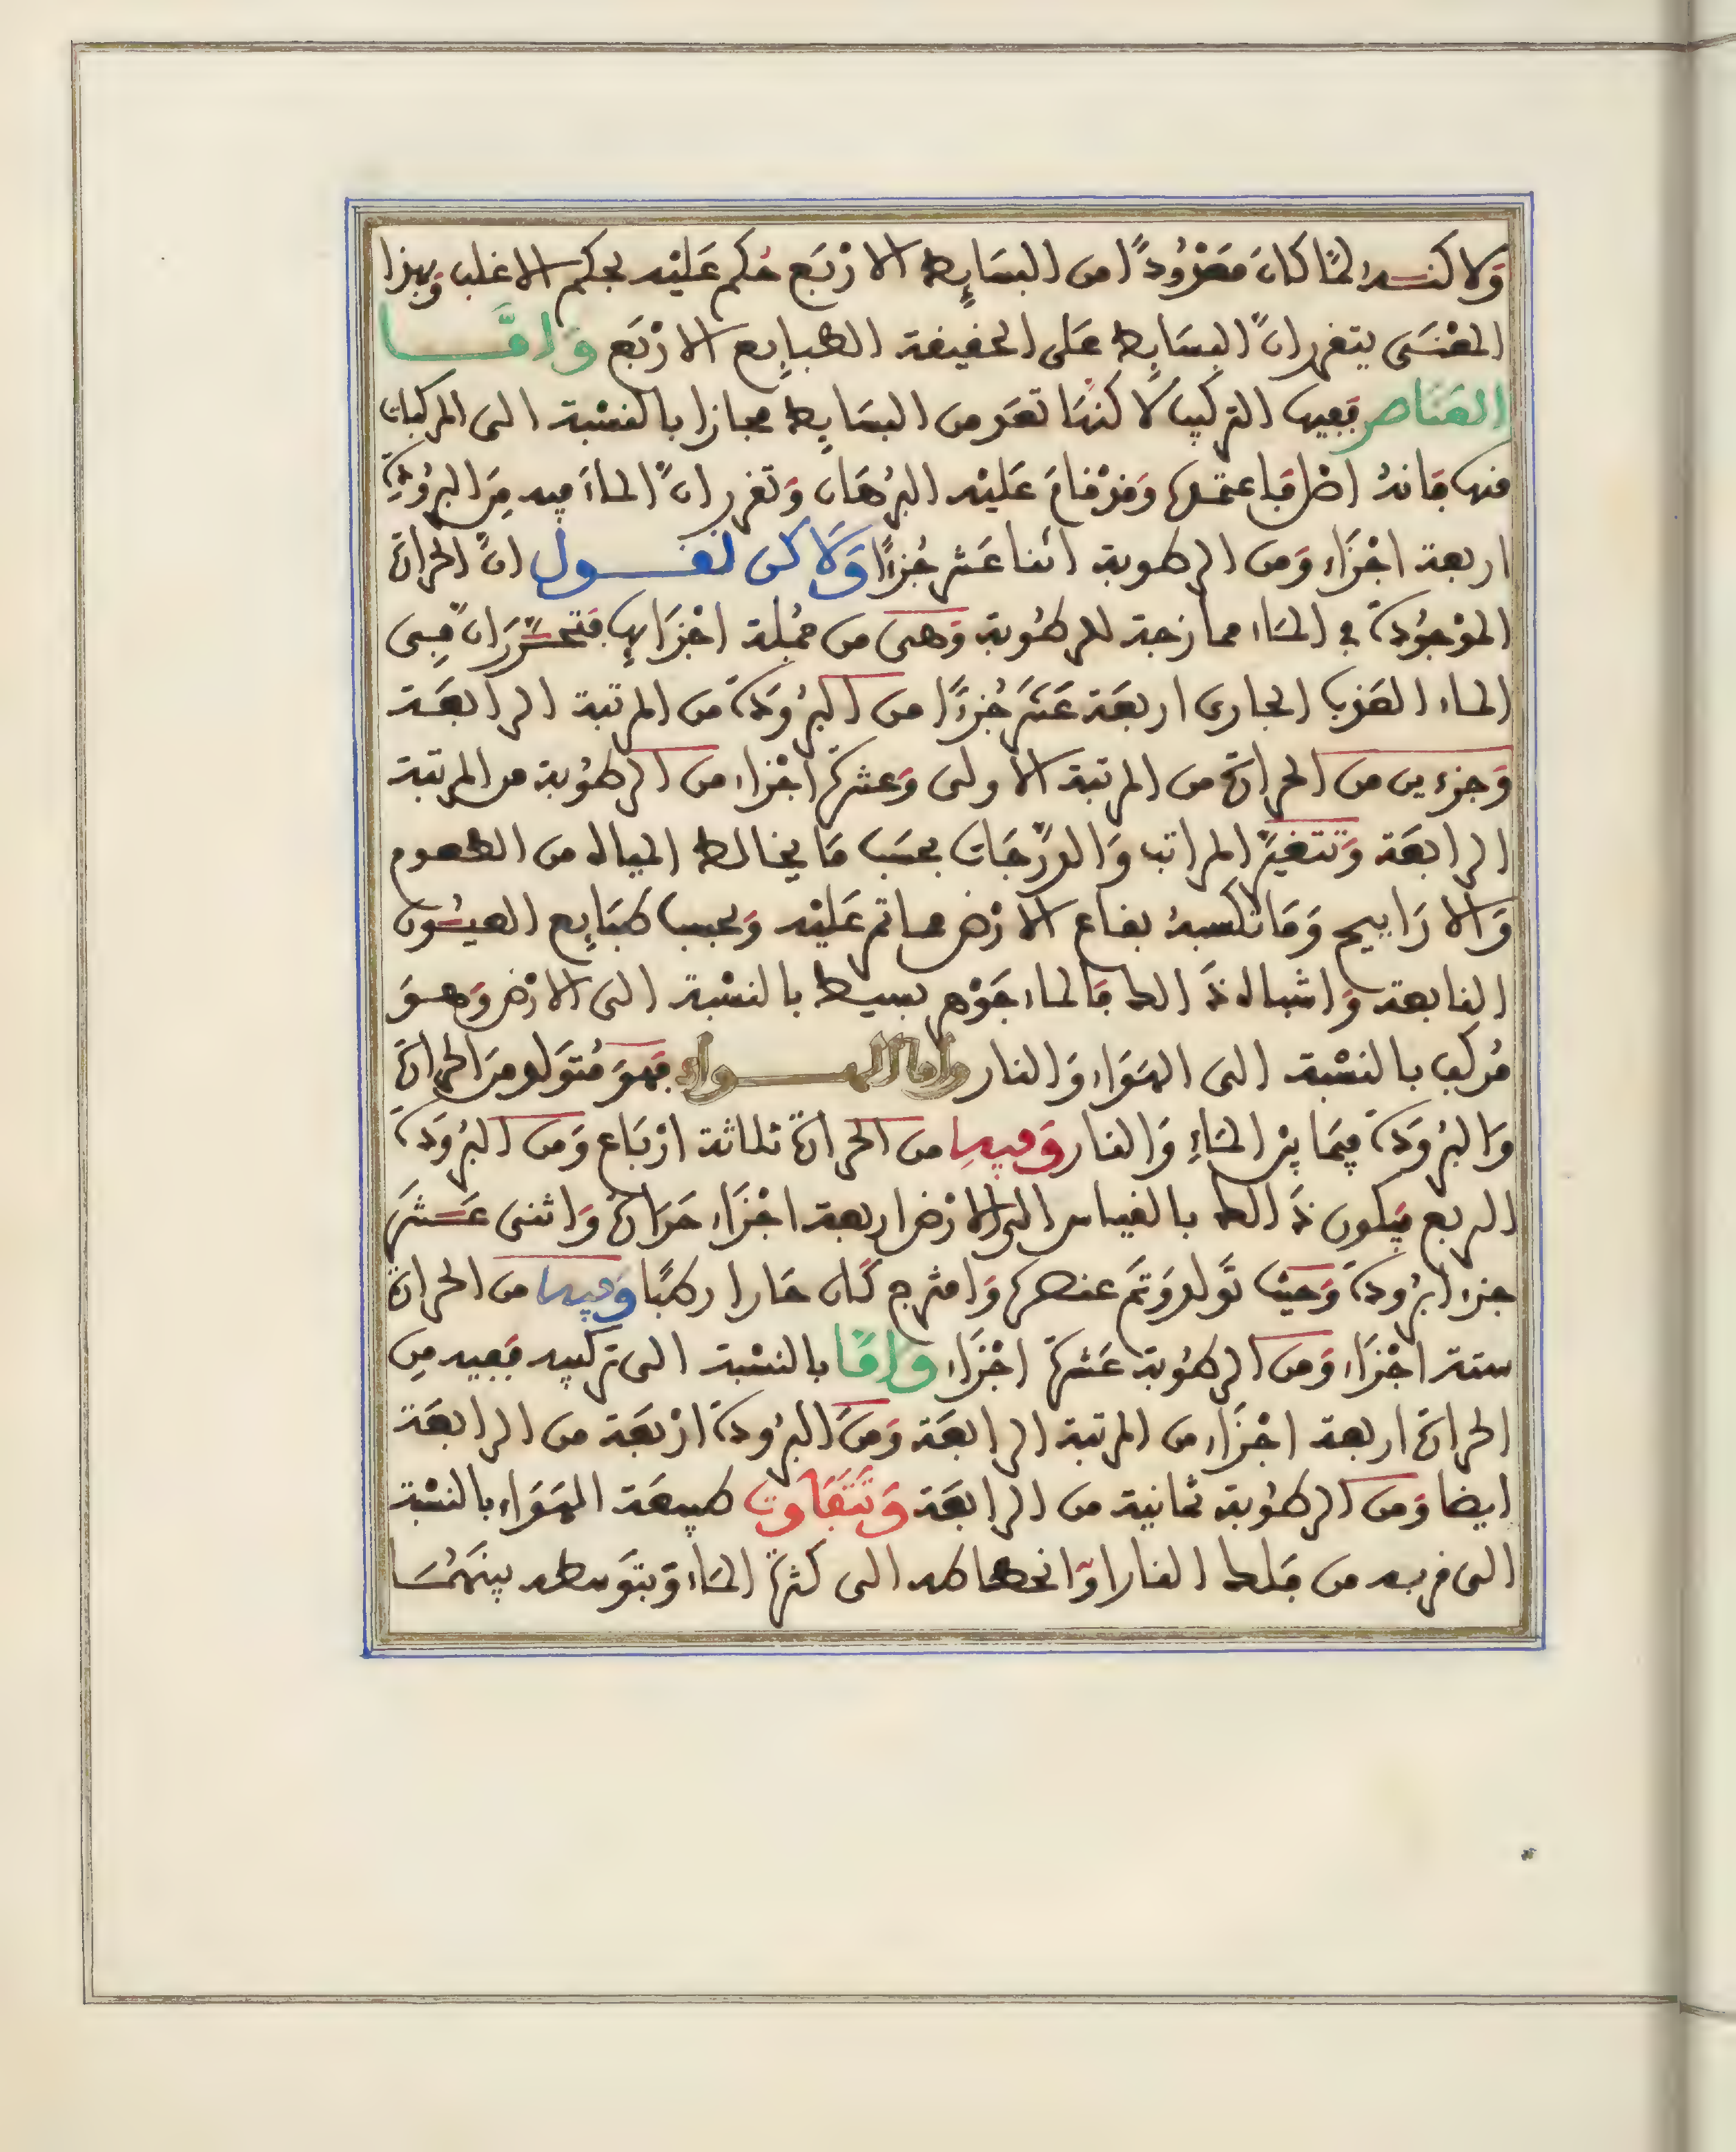 وَلاكنه لمّا كانَ مَعْدُودًا من البسَايِط الارْبَع حُكم عَليْه بحكم الاغلب وَبهذا
المعْنَى يتقرر انّ البسَايِط عَلى الحقيقة الطبايِع الارْبَع وَامَّا
العَنَاصر فَفيها التركيب لاكنهَا تعَد من البسَايِط مجازا بالنسْبة الى المركبات
منها فانهُ اصْل فاعتمدهُ وَقدْ قامَ عَليْه البُرهَان وَتقرر انّ الماءَ فِيه مِنَ البُرُودَةِ
اربعة اجْزَاء وَمن الرطوبة اثنا عَشر جُزءًا وَلَاكن نقول انّ الحرارة
الموْجوُدَة في المَاء ممازجة للرطوُبة وَهىَ من جُمْلة اجْزَايهِا فتحَرَّرَ انّ فِى
الماء العَذب الجارى اربعَة عَشَر جُزءًا من البُرُودَة من المرتبة الرابعَة
وَجزءين من الحرارة من المرتبة الاولى وَعشرة اجْزاء من الرطوُبة من المرتبة
الرابعَة وَتتغيّر المراتب وَالدّرَجَات بحسَب مَا يخالط المياه من الطعوم
وَالارَاييح وَمَا تكسبهُ بقاع الارْض مما تمر عَليْه وَبحسب طبَايِع العيُون
النابعة وَاشباه ذَالك فالماء جَوْهر بسيط بالنسْبة الى الارْض وَهوَ
مُركب بالنسْبة الى الهوَاء وَالنار وامّا الهواء فهوَ مُتوَلد مِنَ الحرارة
وَالبرُودَة فِيمَا بيْن المَاءِ وَالنار وَفيهِا من الحرارة ثلاثة ارْبَاع وَمن البرُودَة
الربع فيَكون ذَالك بالقياس الى الارْض اربعة اجْزَاء حَرَارة وَاثنى عَشَر
جزءا برُودة وَحيْث توَلد وَتمّ عنصرهُ وَامتزج كان حَارا رطبًا وَفيها من الحرارة
ستة اجْزَاء وَمن الرطوُبة عَشرة اجْزَاء وامَّا بالنسْبة الى تركيبه فَفيه مِن
الحرارة اربعة اجْزَاء من المرتبة الرابعَة وَمنَ البرُودَة ارْبعَة من الرابعَة
ايضا وَمن الرطوُبة ثمانية من الرابعَة وَتَتَفَاوت طبيعَة الهوَاء بالنسْبة
الى قربه من فلك النار اوَ انحطاطه الى كثرة المَاء وَبتوَسطه بينَهُمَا